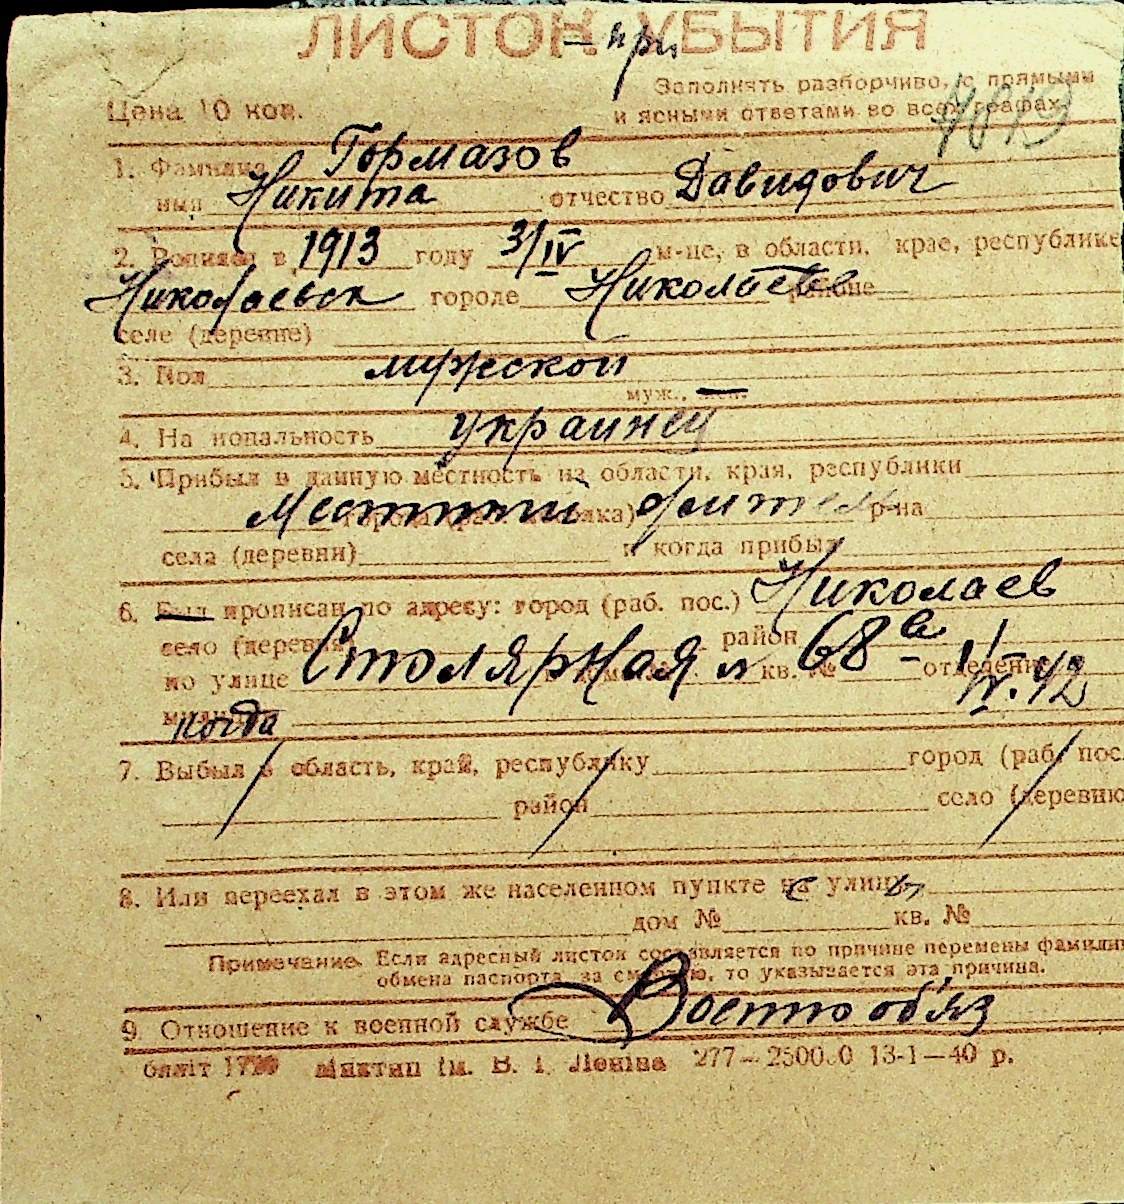 ЛИСТОК УБЫТИЯ
при
Заполнять разборчиво, с прямыми
Цена 10 коп. и ясными ответами во всех графах
1. Фамилия Гормазов
имя Никита отчество Давидович
2. Родился в 1913 году 3/IV м-це, в области, крае, республике
Николаевск городе Николаеве районе
селе (деревне)
3. Пол мужской
муж., жен.
4. Национальность украинец
5. Прибыл в данную местность из области, края, республики
Местный житель р-на
села (деревни) и когда прибыл
6. Был прописан по адресу: город (раб. пос.) Николаев
село (деревня) район
по улице Столярная кв. № 68 отделение
милиции когда IV.42
7. Выбыл в область, край, республику город (раб. пос.
район село (деревню
8. Или переехал в этом же населенном пункте на улицу
дом № кв. №
Примечание. Если адресный листок составляется по причине перемены фамилии
обмена паспорта, за смертью, то указывается эта причина.
9. Отношение к военной службе Военнообяз
ім. В. І. Леніна 277—250000 13-1—40 р.